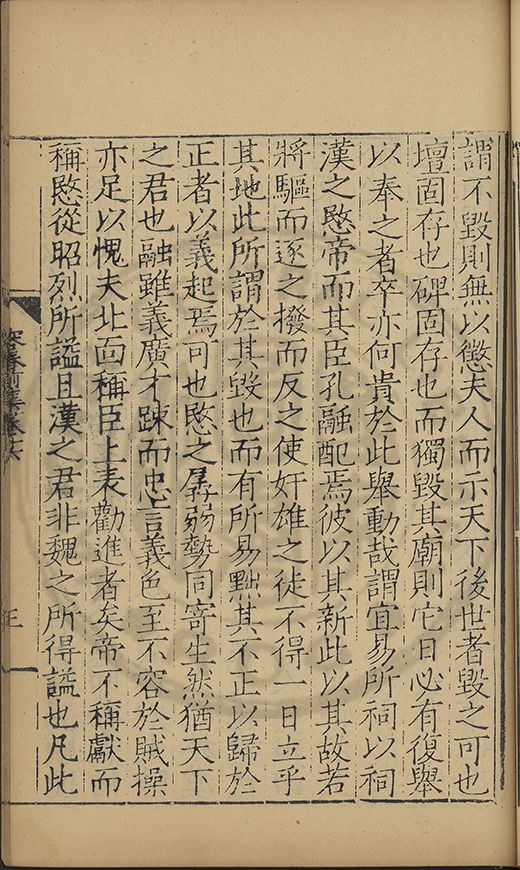 謂不毀則無以懲夫人而示天下後世者毀之可也
壇固存也碑固存也而獨毀其廟則它日必有復舉
以奉之者卒亦何貴於此舉動哉謂宜易所祠以祠
漢之愍帝而其臣孔融配焉彼以其新此以其故若
將驅而逐之撥而反之使奸雄之徒不得一日立乎
其地此所謂於其毀也而有所易黜其不正以歸於
正者以義起焉可也愍之孱弱勢同寄生然猶天下
之君也融雖義廣才踈而忠言義色至不容於賊操
亦足以愧夫北面稱臣上表勸進者矣帝不稱獻而
稱愍從昭烈所謚且漢之君非魏之所得謚也凡此